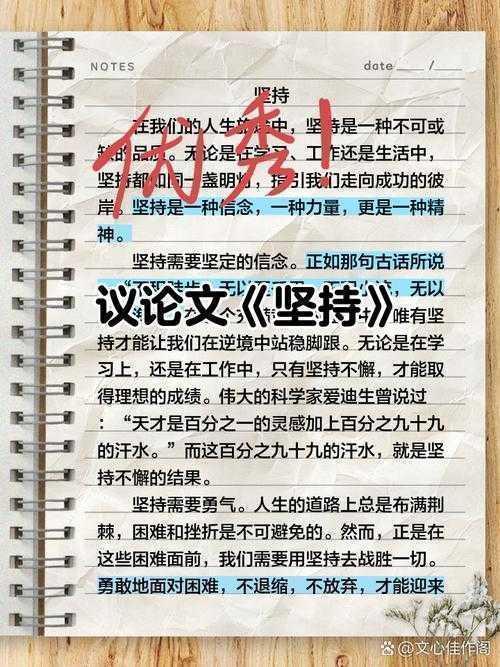 NOTES
date ___ / ___
坚持
优秀!
在我们的人生旅途中，坚持是一种不可或
的品质。无论是在学习、工作还是生活中，
坚持都如同一盏明灯，指引我们走向成功的彼
岸。坚持是一种信念，一种力量，更是一种精
神。
坚持需要坚定的信念。正如那句古话所说
议论文《坚持》
，无以
唯有坚
持才能让我们在逆境中站稳脚跟。无论是在学
习上，还是在工作中，只有坚持不懈，才能取
得理想的成绩。伟大的科学家爱迪生曾说过
：“天才是百分之一的灵感加上百分之九十九
的汗水。”而这百分之九十九的汗水，就是坚
持不懈的结果。
坚持需要勇气。人生的道路上总是布满荆
棘，困难和挫折是不可避免的。然而，正是在
这些困难面前，我们需要用坚持去战胜一切。
勇敢地面对困难，不退缩，不放弃，才能迎来
@文心佳作阁